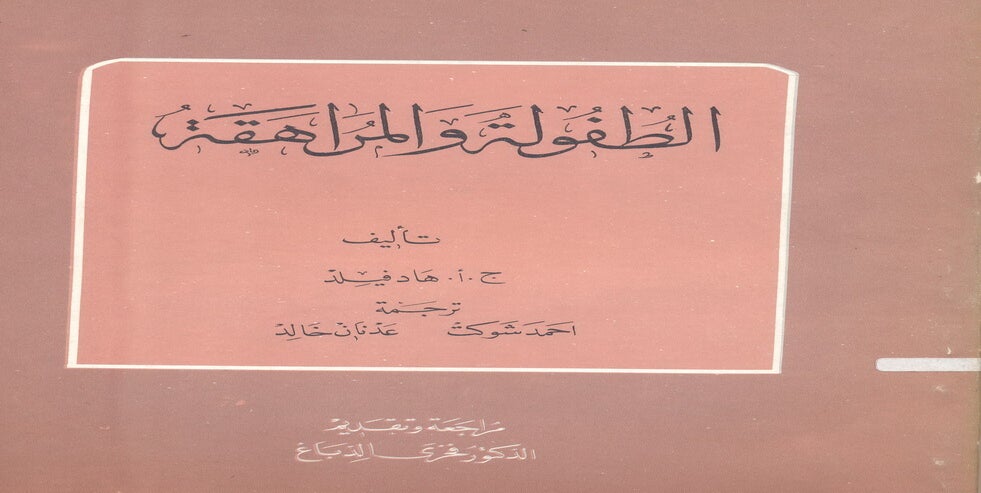 الطفولة والمراهقة
تأليف
ج . أ . هادفيلد
ترجمة
احمد شوكت عدنان خالد
مراجعة وتقديم
الدكتور فخري الدباغ